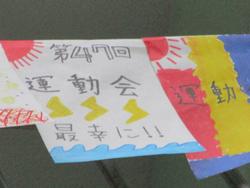 第47回
運動会
最幸に!!
運動